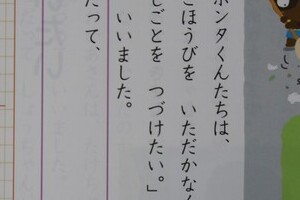 ポンタくんたちは、
ごほうびを いただかなく
しごとを つづけたい。」
いいました。
だって、